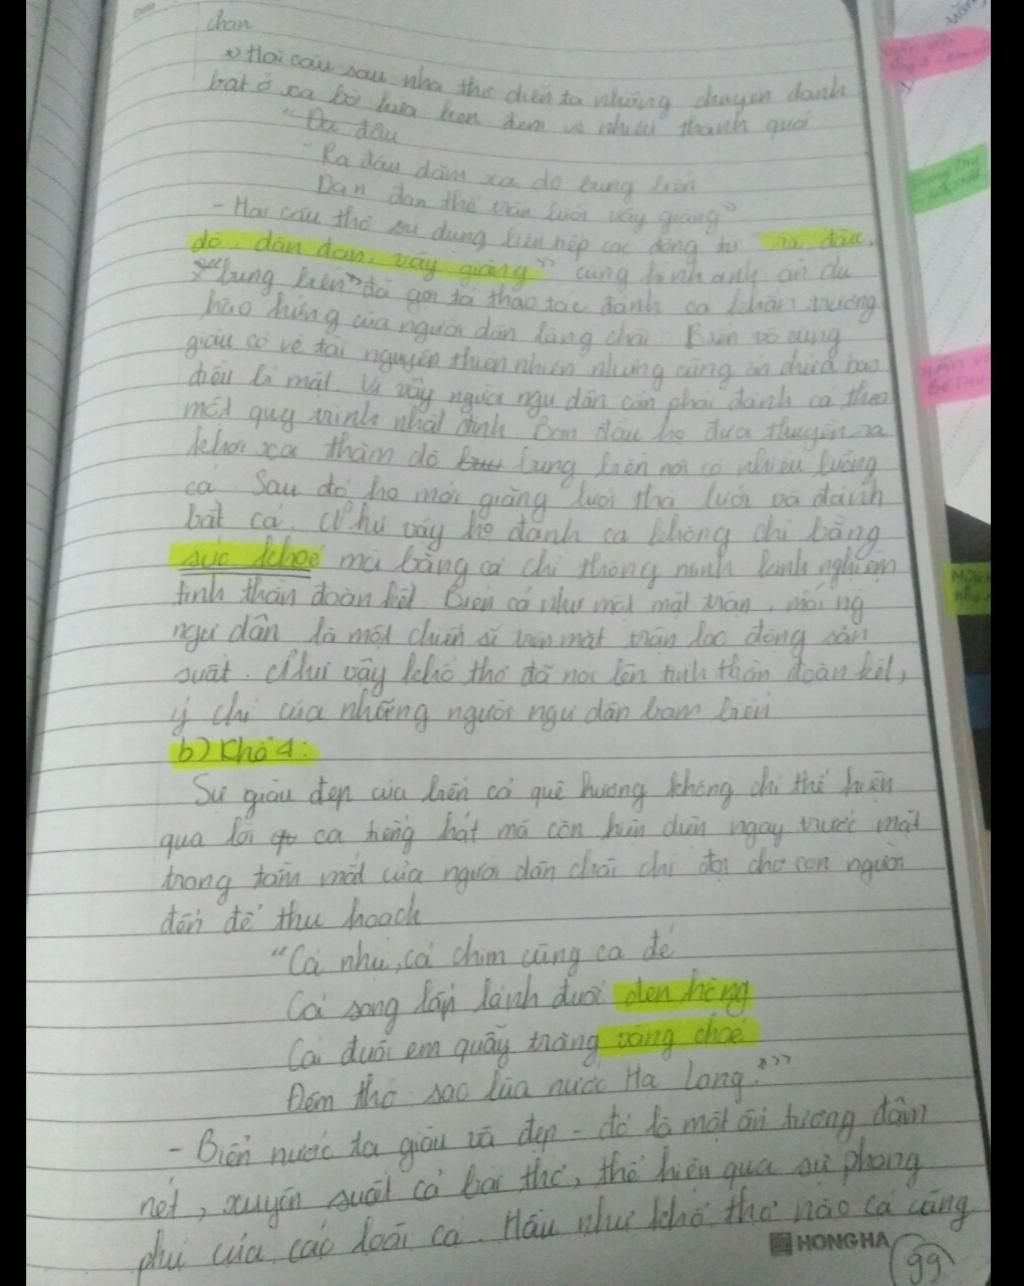 chan
*) Hai câu sau nhà thơ diễn tả những chuyến đánh
bắt ở xa bờ lưới đêm và nhiều thành quả
"Ra đâu
"Ra đậu dặm xa dò bụng biển
Dàn đan thế trận lưới vây giăng"
- Hai câu thơ sử dụng liên tiếp các động từ "ra đậu,
dò, dàn đan, vây giăng" cùng hình ảnh ẩn dụ
"bụng biển" đã gợi tả thao tác đánh cá khẩn trương
hào hứng của người dân làng chài. Biển vô cùng
giàu có về tài nguyên thiên nhiên nhưng cũng ẩn chứa bao
điều bí mật. Vì vậy người ngư dân cần phải đánh cá theo
một quy trình nhất định. Ban đầu họ đưa thuyền ra
khơi xa thăm dò bụng biển nơi có nhiều luồng
cá. Sau đó họ mới giăng lưới thả lưới và đánh
bắt cá. Như vậy họ đánh cá không chỉ bằng
sức khoẻ mà bằng cả chí thông minh kinh nghiệm
tinh thần đoàn kết. Biển cả như một mặt trận, mỗi ng
ngư dân là một chiến sĩ trên mặt trận lao động sản
suất. Như vậy khổ thơ đã nói lên tinh thần đoàn kết,
ý chí của những người ngư dân bám biển
b) Khổ 4:
Sự giàu đẹp của biển cả quê hương không chỉ thể hiện
qua lời ca tiếng hát mà còn hiện diện ngay trước mắt
trong tầm mắt của người dân chài chỉ đợi chờ con người
đến để thu hoạch
"Cá nhụ, cá chim cùng cá đé
Cá song lấp lánh đuốc đen hồng
Cái đuôi em quẫy trăng vàng choé
Đêm thở sao lùa nước Hạ Long."
- Biển nước ta giàu và đẹp - đó là một ấn tượng đậm
nét, xuyên suốt cả bài thơ, thể hiện qua sự phong
phú của các loài cá. Hầu như khổ thơ nào cá cũng
HONG HA
99